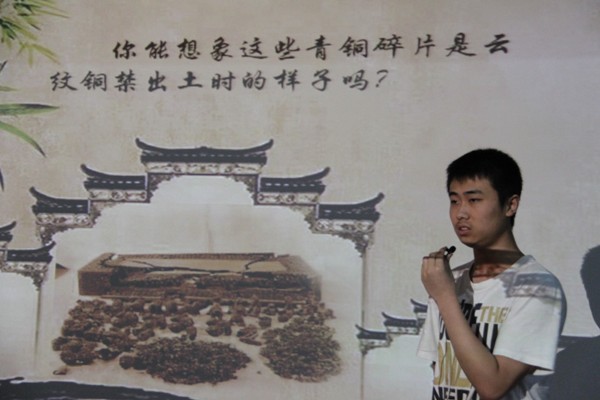 你能想象这些青铜碎片是云
纹铜禁出土时的样子吗？
THE